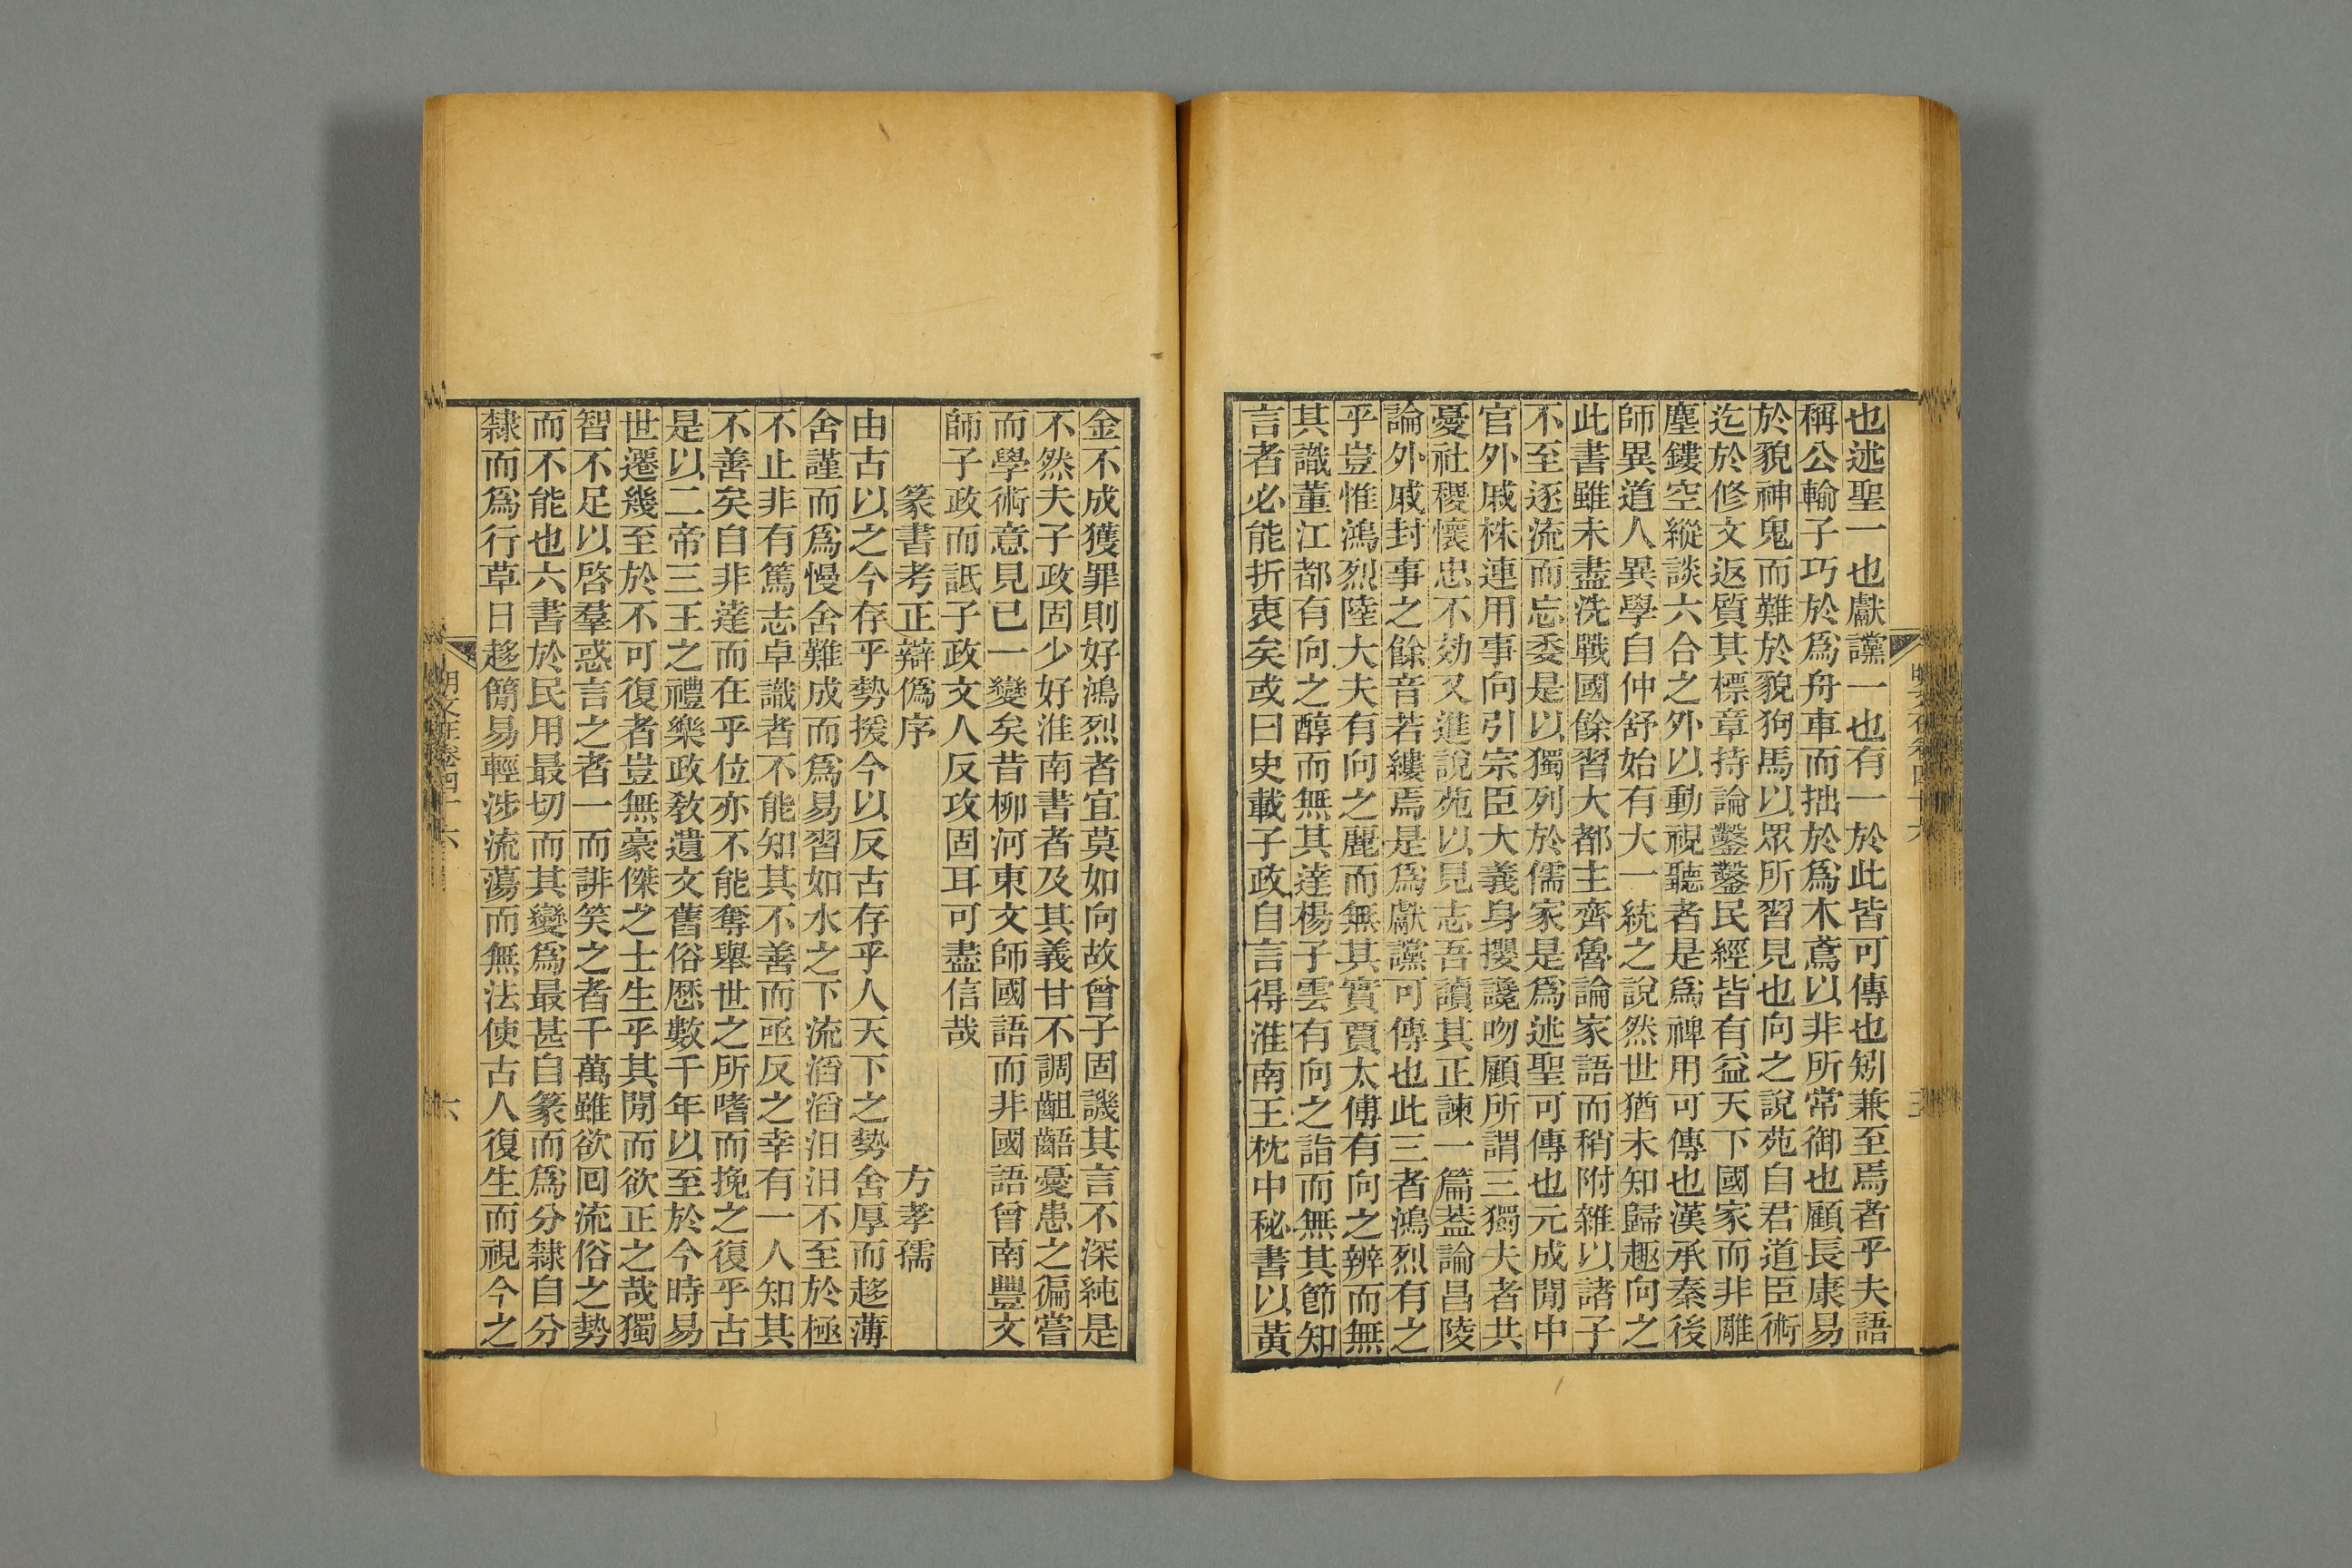 也述聖一也獻讜一也有一於此皆可傳也矧兼至焉者乎夫語
稱公輸子巧於爲舟車而拙於爲木鳶以非所常御也顧長康易
於貌神鬼而難於貌狗馬以眾所習見也向之說苑自君道臣術
迄於修文返質其標章持論鑿鑿民經皆有益天下國家而非雕
塵鏤空縱談六合之外以動視聽者是爲裨用可傳也漢承秦後
師異道人異學自仲舒始有大一統之說然世猶未知歸趣向之
此書雖未盡洗戰國餘習大都主齊魯論家語而稍附雜以諸子
不至逐流而忘委是以獨列於儒家是爲述聖可傳也元成閒中
官外戚株連用事向引宗臣大義身攖讒吻顧所謂三獨夫者共
憂社稷懷忠不効又進說苑以見志吾讀其正諫一篇葢論昌陵
論外戚封事之餘音若縷焉是爲獻讜可傳也此三者鴻烈有之
乎豈惟鴻烈陸大夫有向之麗而無其實賈太傅有向之辨而無
其識董江都有向之醇而無其達楊子雲有向之詣而無其節知
言者必能折衷矣或曰史載子政自言得淮南王枕中秘書以黃
金不成獲罪則好鴻烈者宜莫如向故曾子固譏其言不深純是
不然夫子政固少好淮南書者及其義甘不調齟齬憂患之徧嘗
而學術意見已一變矣昔柳河東文師國語而非國語曾南豐文
師子政而詆子政文人反攻固耳可盡信哉
篆書考正辯僞序 方孝孺
由古以之今存乎勢援今以反古存乎人天下之勢舍厚而趍薄
舍謹而爲慢舍難成而爲易習如水之下流滔滔汨汨不至於極
不止非有篤志卓識者不能知其不善而亟反之幸有一人知其
不善矣自非達而在乎位亦不能奪舉世之所嗜而挽之復乎古
是以二帝三王之禮樂政敎遺文舊俗厯數千年以至於今時易
世遷幾至於不可復者豈無豪傑之士生乎其閒而欲正之哉獨
智不足以啓羣惑言之者一而誹笑之者千萬雖欲回流俗之勢
而不能也六書於民用最切而其變爲最甚自篆而爲分隸自分
隸而爲行草日趍簡易輕涉流蕩而無法使古人復生而視今之
明文在卷四十六
六